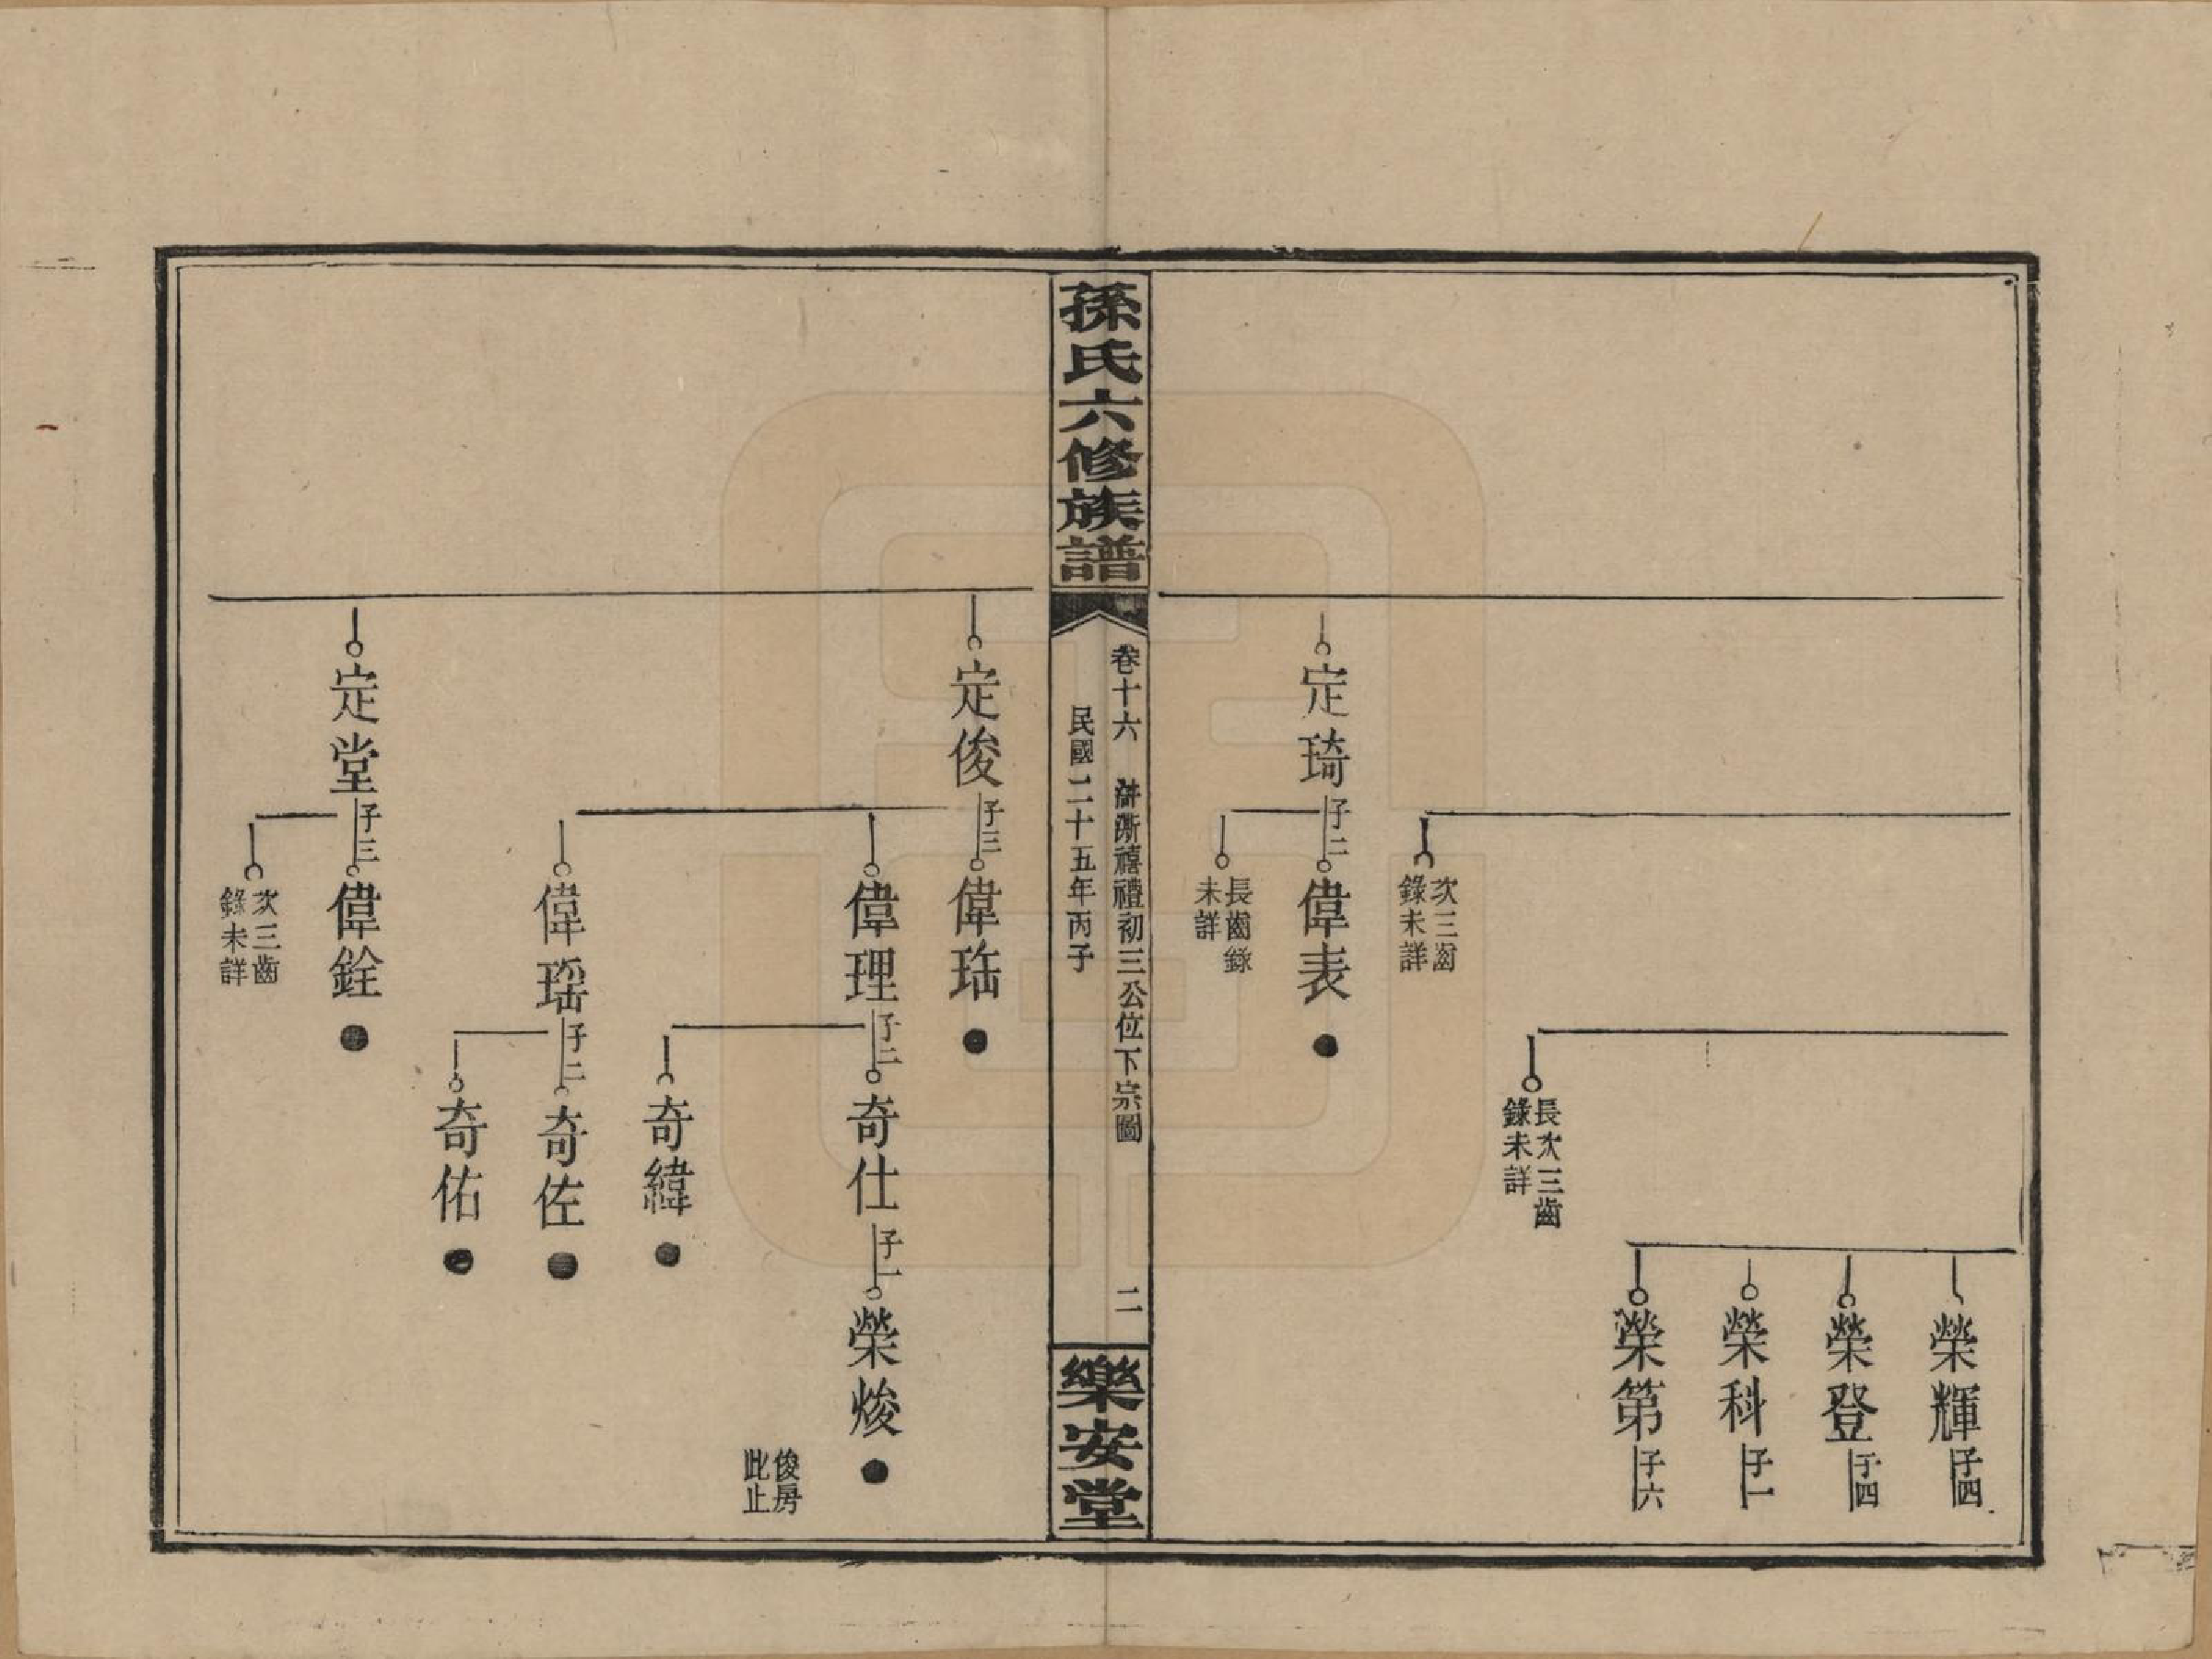 榮輝子四
榮登子四
榮科子一
榮第子六
長次三齒
錄未詳
次三齒
錄未詳
定琦子二偉表
長齒錄
未詳
孫氏六修族譜
卷十六 禧禮初三公位下宗圖 二
民國二十五年丙子
樂安堂
定俊子三偉珤
偉理子二奇仕子一榮焌
俊房
此止
奇緯
偉瑶子二奇佐
奇佑
定堂子三偉銓
次三齒
錄未詳